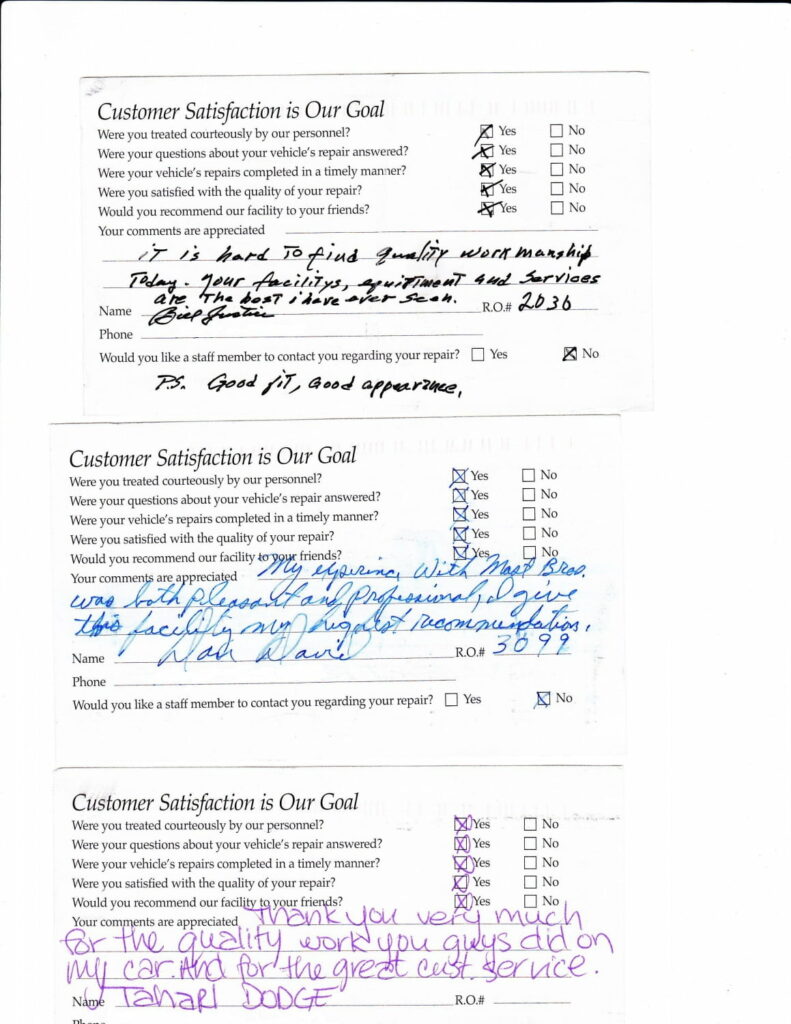 Customer Satisfaction is Our Goal
Were you treated courteously by our personnel? Yes No
Were your questions about your vehicle's repair answered? Yes No
Were your vehicle's repairs completed in a timely manner? Yes No
Were you satisfied with the quality of your repair? Yes No
Would you recommend our facility to your friends? Yes No
Your comments are appreciated
it is hard To find quality workmanship
Today. your facilitys, equitment and services
are The best i have ever seen.
Name Bill Justice R.O.# 2036
Phone
Would you like a staff member to contact you regarding your repair? Yes No
P.S. Good fit, Good appearance.
Customer Satisfaction is Our Goal
Were you treated courteously by our personnel? Yes No
Were your questions about your vehicle's repair answered? Yes No
Were your vehicle's repairs completed in a timely manner? Yes No
Were you satisfied with the quality of your repair? Yes No
Would you recommend our facility to your friends? Yes No
Your comments are appreciated My With Mast Bros.
was both Pleasant and Professional, I give
this facility my highest recommendation.
Name Davis R.O.# 3099
Phone
Would you like a staff member to contact you regarding your repair? Yes No
Customer Satisfaction is Our Goal
Were you treated courteously by our personnel? Yes No
Were your questions about your vehicle's repair answered? Yes No
Were your vehicle's repairs completed in a timely manner? Yes No
Were you satisfied with the quality of your repair? Yes No
Would you recommend our facility to your friends? Yes No
Your comments are appreciated Thank you very much
for the quality work you guys did on
my car. And for the great cust. service.
Name TAHARI DODGE R.O.#
Phone